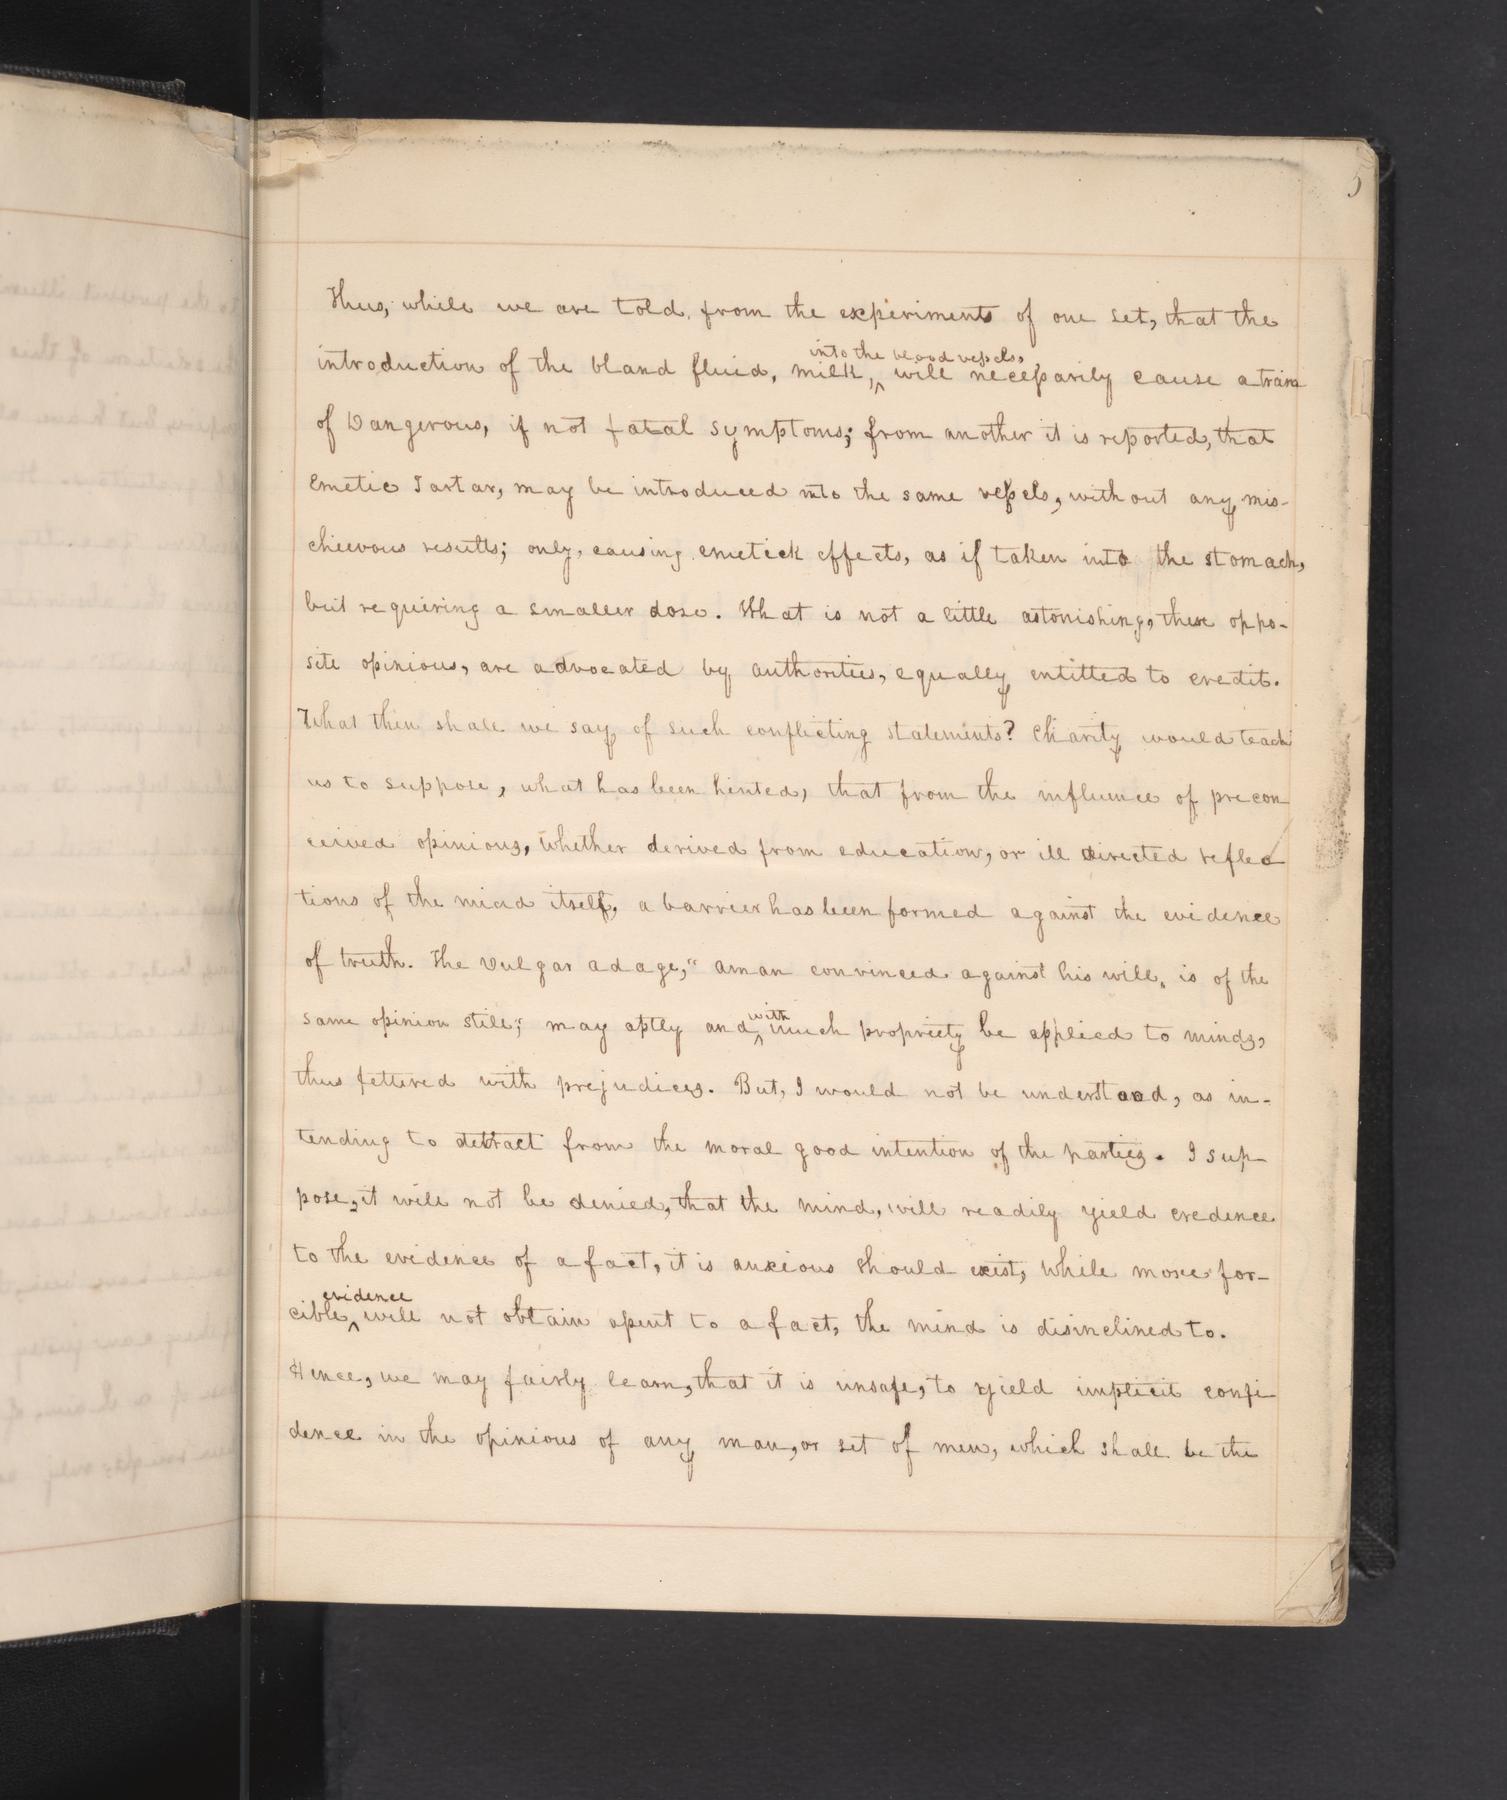 5
Thus, while we are told, from the experiments of one set, that the
into the blood vessels,
introduction of the bland fluid, milk,^ will necessarily cause a train
of Dangerous, if not fatal symptoms; from another it is reported, that
Emetic Tartar, may be introduced into the same vessels, without any mis-
chievous results; only, causing emetick effects, as if taken into the stomach,
but requiring a smaller dose. What is not a little astonishing, these oppo-
site opinions, are advocated by authorities, equally entitled to credit.
What then shall we say of such conflicting statements? Charity would teach
us to suppose, what has been hinted, that from the influence of precon
ceived opinions, whether derived from education, or ill directed reflec
tions of the mind itself, a barrier has been formed against the evidence
of truth. The Vulgar adage, "a man convinced against his will, is of the
with
same opinion still; may aptly and^ much propriety be applied to minds,
thus fettered with prejudices. But, I would not be understood, as in-
tending to detract from the moral good intention of the parties. I sup-
pose, it will not be denied, that the mind, will readily yield credence
to the evidence of a fact, it is anxious should exist, while more for-
evidence
cible^ will not obtain assent to a fact, the mind is disinclined to.
Hence, we may fairly learn, that it is unsafe, to yield implicit confi-
dence in the opinions of any man, or set of men, which shall be the